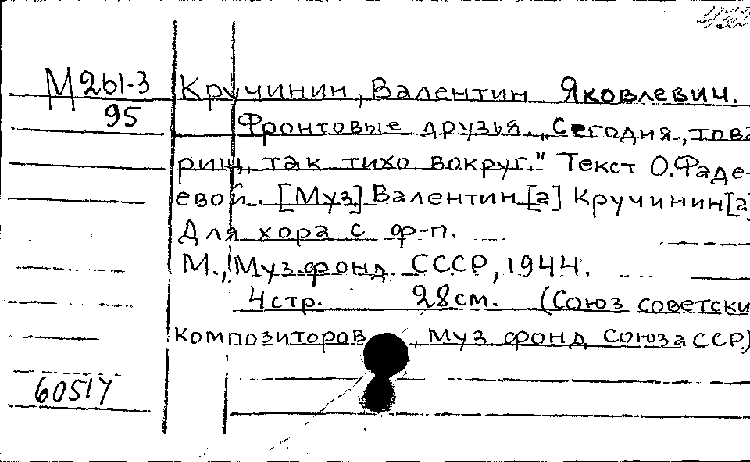 М 261-3 Кручинин, Валентин Яковлевич.
95 Фронтовые друзья „Сегодня, това-
рищ, так тихо вокруг." Текст О.Фаде-
евой. [Муз] Валентин[а] Кручинин[а]
Для хора с ф-п.
М., Музфонд СССР, 1944.
4стр. 28см. (Союз советски
композиторов, муз фонд Союза ССР)
60517